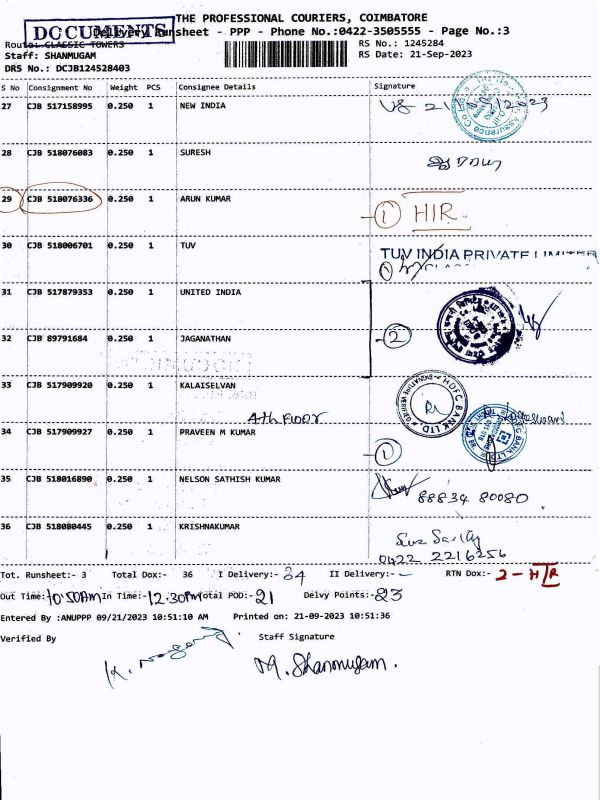 THE PROFESSIONAL COURIERS, COIMBATORE
DOCUMENTS
Delivery Runsheet - PPP - Phone No.:0422-3505555 - Page No.:3
Route: CLASSIC TOWERS
RS No.: 1245284
Staff: SHANMUGAM
RS Date: 21-Sep-2023
DRS No.: DCJB124528403
S No Consignment No Weight PCS Consignee Details Signature
27 CJB 517158995 0.250 1 NEW INDIA
28 CJB 518076083 0.250 1 SURESH
29 CJB 518076336 0.250 1 ARUN KUMAR
1 HIR.
30 CJB 518006701 0.250 1 TUV
TUV INDIA PRIVATE LIMITED
1
31 CJB 517879353 0.250 1 UNITED INDIA
32 CJB 89791684 0.250 1 JAGANATHAN
2
33 CJB 517909920 0.250 1 KALAISELVAN
HDFC BANK LTD.
SIGNATURE VERIFIED
4th Floor
34 CJB 517909927 0.250 1 PRAVEEN M KUMAR
1
35 CJB 518016890 0.250 1 NELSON SATHISH KUMAR
88834 80080
36 CJB 518080445 0.250 1 KRISHNAKUMAR
0422 2216256
Tot. Runsheet:- 3 Total Dox:- 36 I Delivery:- 34 II Delivery:- - RTN Dox:- 2 - HIR
Out Time:- 10:50Am In Time:- 12.30Pm Total POD:- 21 Delvy Points:- 23
Entered By :ANUPPP 09/21/2023 10:51:10 AM Printed on: 21-09-2023 10:51:36
Verified By Staff Signature
M. Shanmugam.